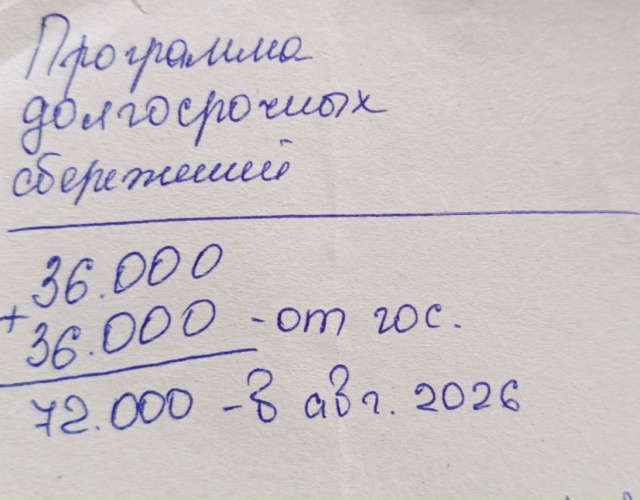 Программа
долгосрочных
сбережений
36.000
+
36.000 - от гос.
72.000 - в авг. 2026